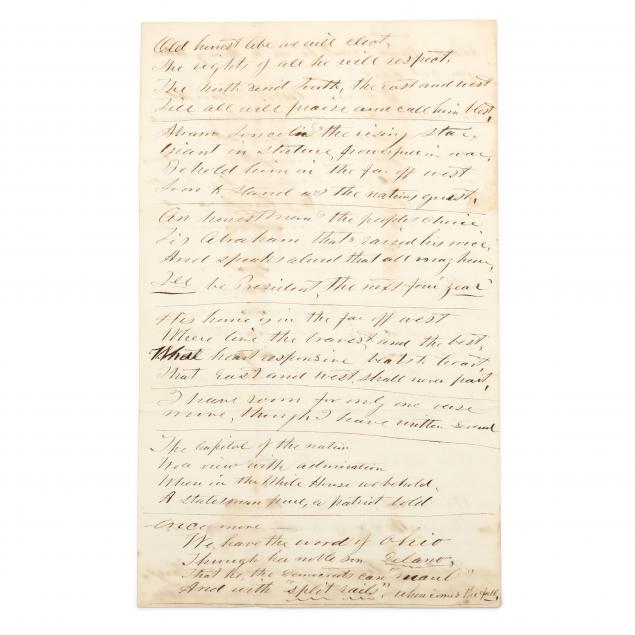 Old honest Abe we will elect,
The rights of all he will respect,
The north and South, the east and west
Till all will praise and call him blest,
Abram Lincoln the rising star,
Giant in stature, powerful in war,
Behold him in the far off west
Soon to stand as the nations guest,
An honest man the peoples choice
Tis Abraham that's raised his voice,
And speaks aloud that all may hear,
Ill be President, the next four year
His home is in the far off west
Where live the bravest and the best,
Whose heart responsive beats to heart,
That East and west, shall never part,
I have room for only one verse
more, though I have written several
The Capitol of the nation
We view with admiration
When in the White House we behold
A statesman pure, a patriot bold
once more
We have the word of Ohio
Through her noble son Delano,
That he, the democrats can "maul"
And with "split rails", when comes the fall,